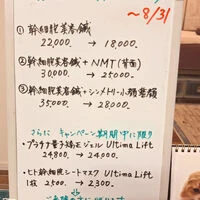 ~8/31
① 幹細胞美容鍼
22,000 → 18,000.
② 幹細胞美容鍼 + NMT (背面)
30,000 → 25,000.
③ 幹細胞美容鍼+シンメトリー小顔整顔
35,000 → 28,000
さらに キャンペーン期間中に限り
・プラチナ量子矯正ジェル Ultima Lift
24,800 → 24,000.
・ヒト幹細胞シートマスク Ultima Lift
1枚 2500 → 2300.